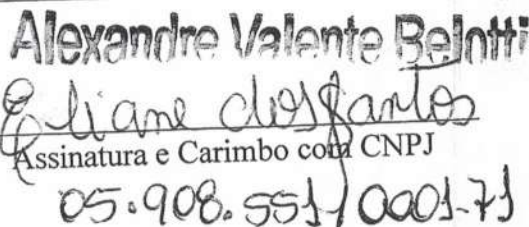 Alexandre Valente Belotti
Eliane dos Santos
Assinatura e Carimbo com CNPJ
05.908.551/0001-71